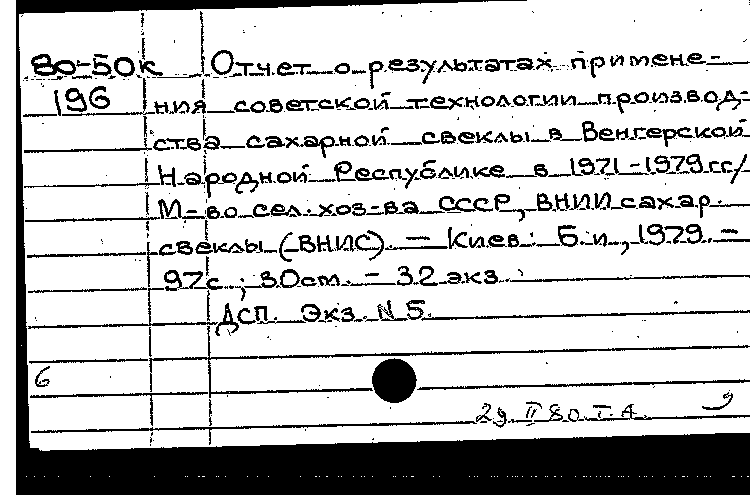 80-50к Отчет о результатах примене-
196 ния советской технологии производ-
ства сахарной свеклы в Венгерской
Народной Республике в 1971-1979 гг/
М-во сел. хоз-ва СССР, ВНИИ сахар.
свеклы (-ВНИС). — Киев: Б.и., 1979. -
97с ; 30см. - 32 экз.
ДСП. Экз. N 5.
6
29 II 80. Т. А.